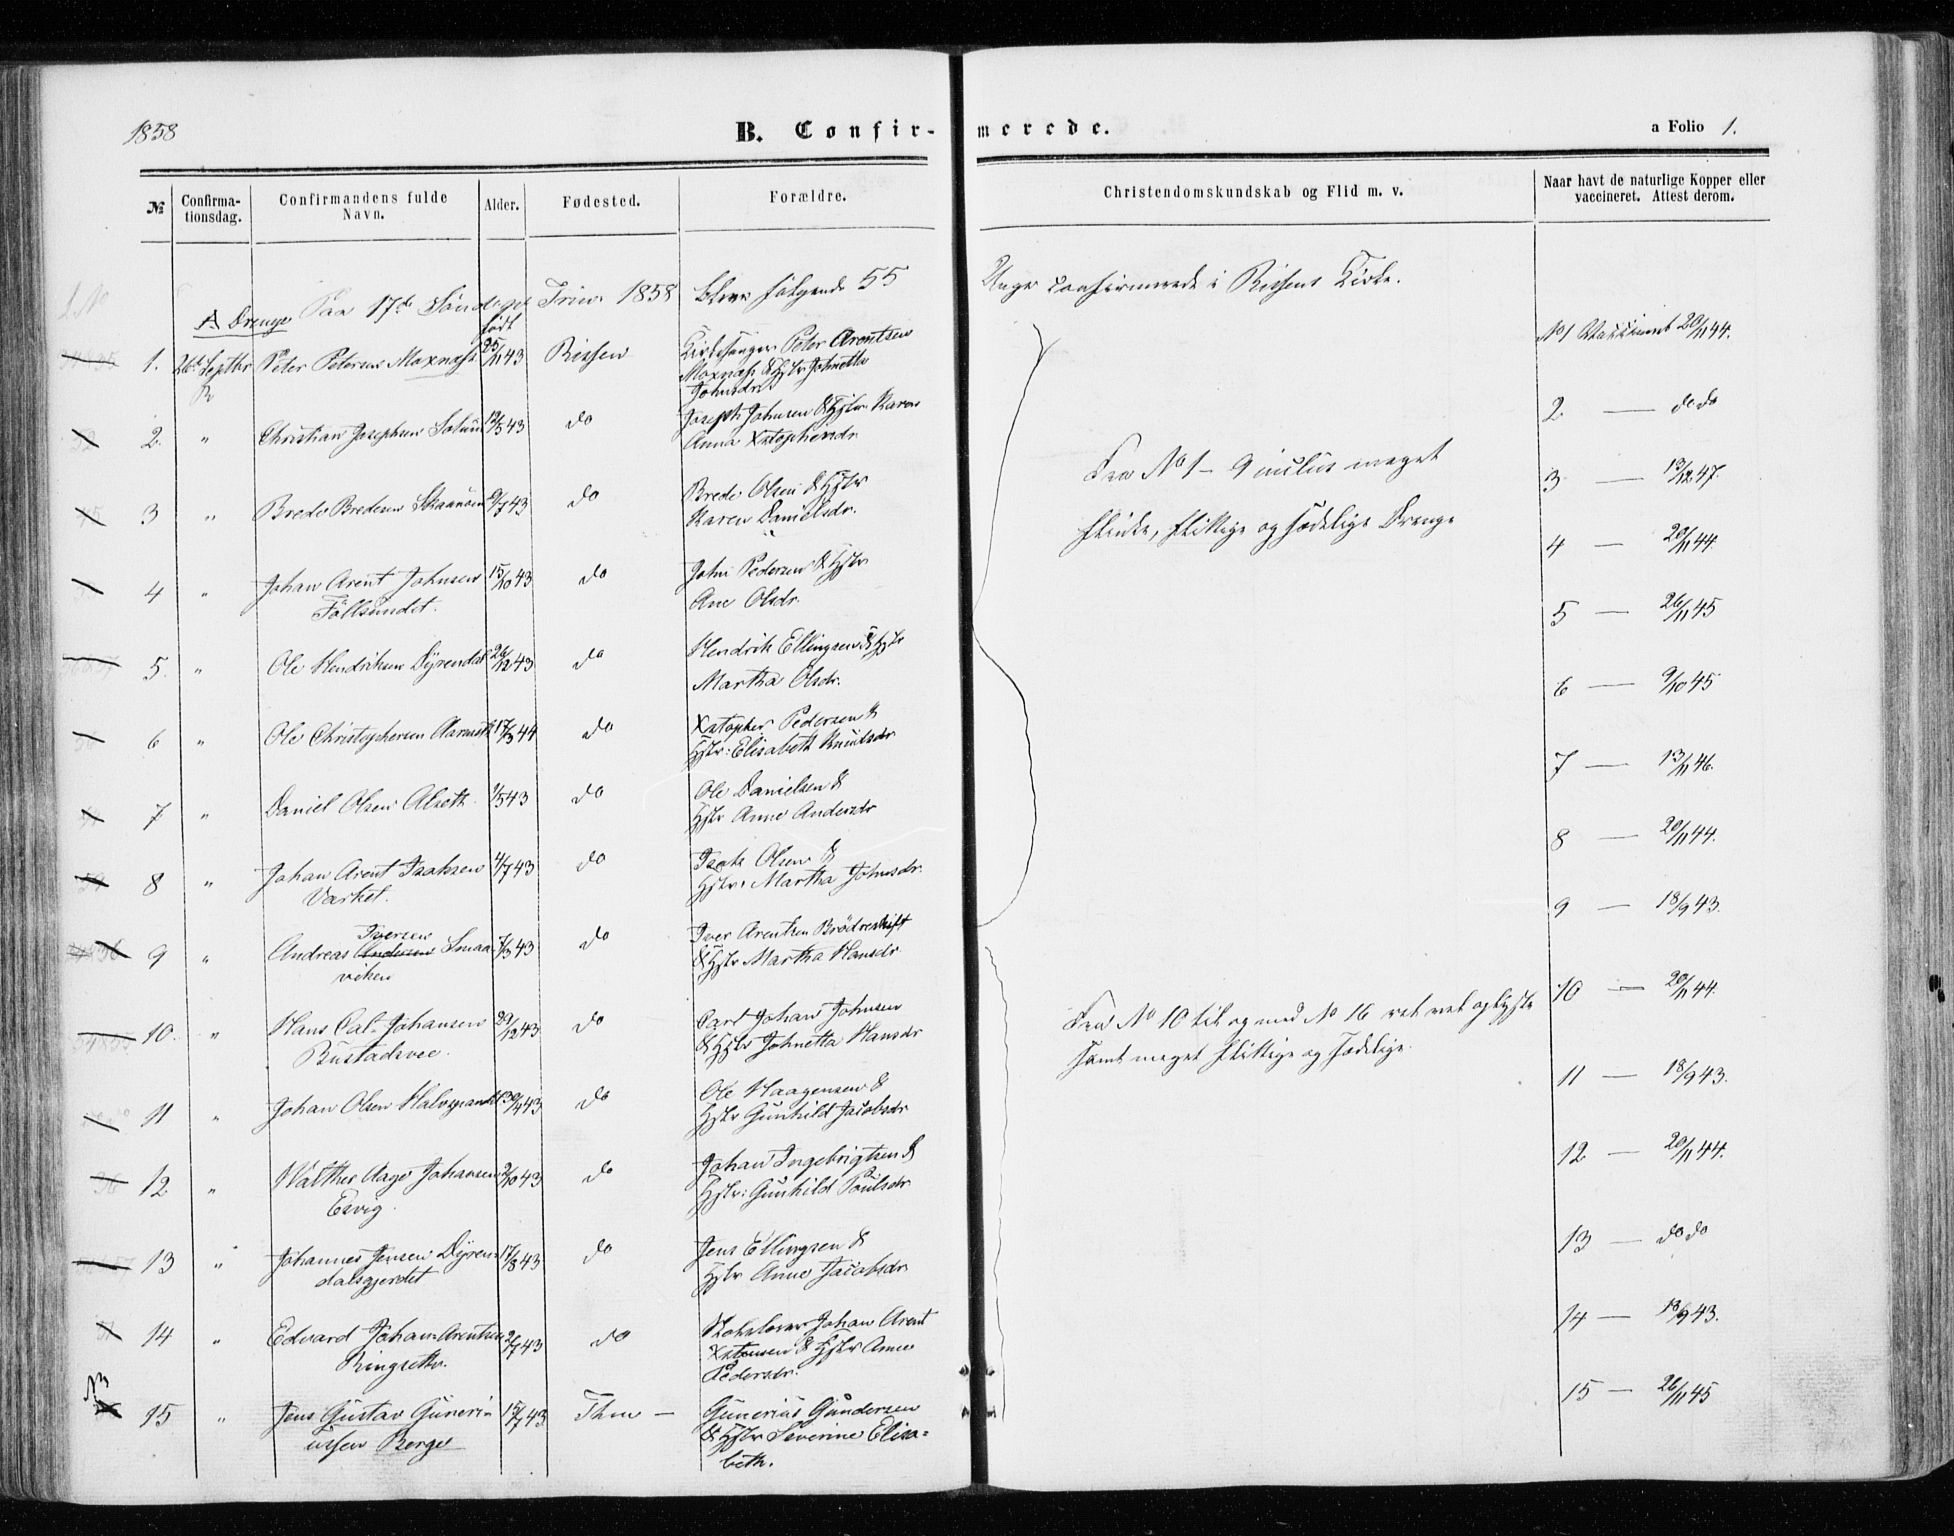 1858
B. Confirmerede.
a Folio 1.
№
Confirmationsdag.
Confirmandens fulde Navn.
Alder.
Fødested.
Forældre.
Christendomskundskab og Flid m. v.
Naar havt de naturlige Kopper eller vaccineret. Attest derom.
Paa 17de Søndag Trin. 1858 bleve følgende 55 Unge confirmerede i Rissens Kirke.
A Drenge
født
1. 26d Septbr Peter Petersen Moxnæs 25/11 43 Rissen Kirkesanger Peter Arentsen
Moxnæs & Hstr Johnetta
Johnsdr
No 1 Vaccineret 20/11 44.
2. " Christian Josephsen Solum 12/5 43 do Joseph Johnsen & Hstr Karen
Anna Xstophersdr
2 — do do
3 " Brede Bredesen Skaanøen 9/7 43 do Brede Olsen & Hstr
Karen Danielsdr.
3 — 13/12 47.
Fra No 1 - 9 inclus meget
flinke, flittige og sædelige Drenge
4 " Johan Arent Johnsen 15/10 43 do John Pedersen & Hstr
Fallsundet. Ane Olsdr.
4 — 20/11 44.
5. " Ole Hendriksen Dyrendal 26/12 43 do Hendrik Ellingsen & Hstr
Martha Olsdr.
5 — 26/11 45
6 " Ole Christophersen 17/3 44 do Xstopher Pedersen &
Hstr: Elisabeth Knudsdr
6 — 9/10 45
7 " Daniel Olsen Alseth 1/5 43 do Ole Danielsen &
Hstr Anne Andersdr
7 — 13/11 46.
8 " Johan Arent Isaksen 4/7 43 do Isak Olsen &
Hstr: Martha Johnsdr.
8 — 20/11 44.
9 " Andreas Iversen Smaa- 7/3 43 do Iver Arentsen Brödreskift
viken & Hstr Martha Hansdr
9 — 18/9 43.
10. " Hans Carl Johansen 29/12 43 do Carl Johan Johnsen
Rustadsvee. & Hstr Johnetta Hansdr
10 — 20/11 44.
Fra No 10 til og med No 16 ret vel oplyste
samt meget flittige og sædelige.
11 " Johan Olsen 30/4 43 do Ole Haagensen &
Hstr Gunhild Jacobsdr
11 — 18/9 43.
12 " Walther Aage Johansen 2/10 43 do Johan Ingebrigtsen &
Esvig. Hstr: Gunhild Poulsdr
12 — 20/11 44.
13 " Johannes Jensen Dyren- 17/8 43 do Jens Ellingsen &
dalsgjerdet Hstr Anne Jacobsdr
13 — do do
14 " Edvard Johan Arentsen 2/7 43 do Johan Arent
Ringsethr. & Hstr Anne
Pedersdr.
14 — 18/9 43.
15 " Jens Gustav Guneri- 15/7 43 Thm — Gunerius Gundersen
ussen Berge & Hstr Severine Elisa=
beth.
15 — 26/11 45